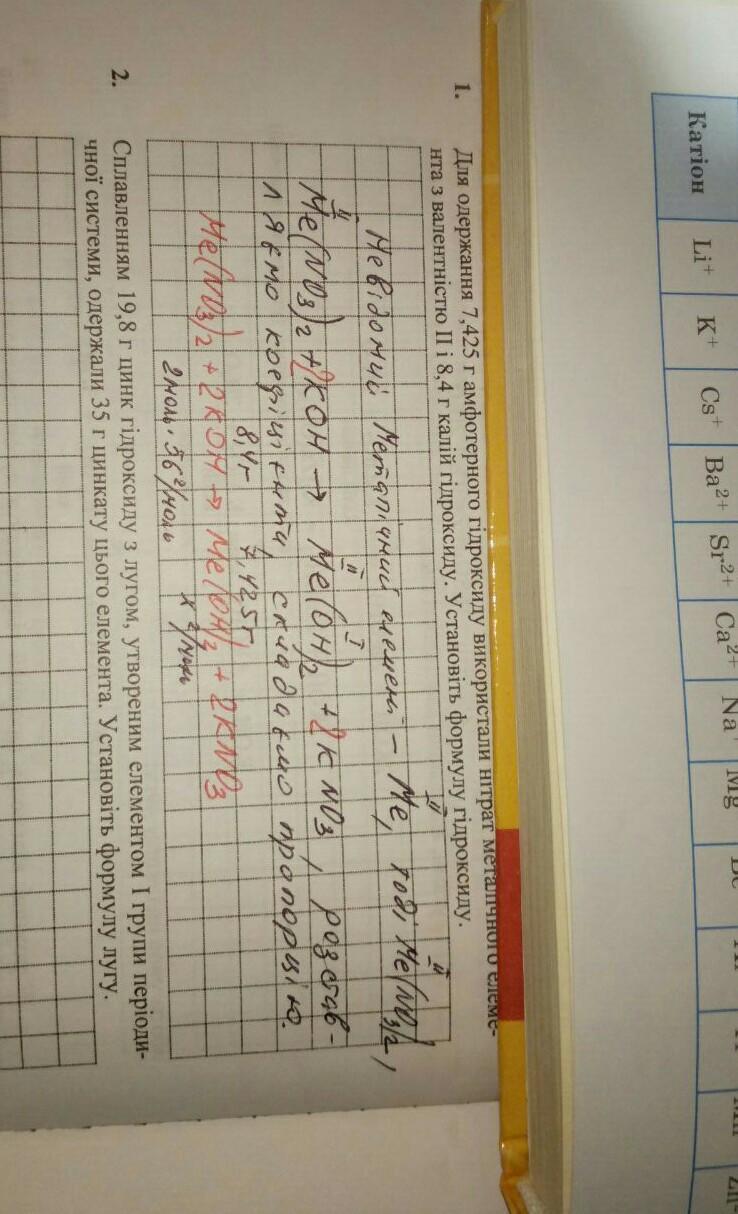 Катіон Li⁺ K⁺ Cs⁺ Ba²⁺ Sr²⁺ Ca²⁺ Na⁺ Mg
1. Для одержання 7,425 г амфотерного гідроксиду використали нітрат металічного елеме-
нта з валентністю ІІ і 8,4 г калій гідроксиду. Установіть формулу гідроксиду.
II II
Невідомий Металічний елемент – Ме, тоді Me(NO3)2,
II II I
Me(NO3)2 + 2KOH → Me(OH)2 + 2KNO3, розстав-
ляємо коефіцієнти, складаємо пропорцію.
8,4г 7,425г
Me(NO3)2 + 2KOH → Me(OH)2 + 2KNO3
2моль·56г/моль x г/моль
2. Сплавленням 19,8 г цинк гідроксиду з лугом, утвореним елементом І групи періоди-
чної системи, одержали 35 г цинкату цього елемента. Установіть формулу лугу.